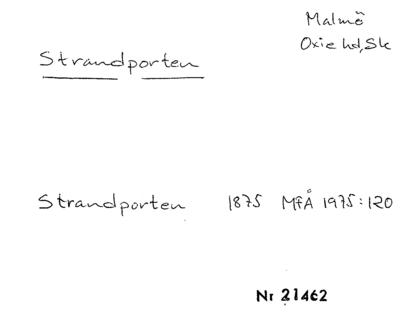 Malmö
Oxie hd, Sk
Strandporten
Strandporten 1875 MfÅ 1975:120
Nr 21462